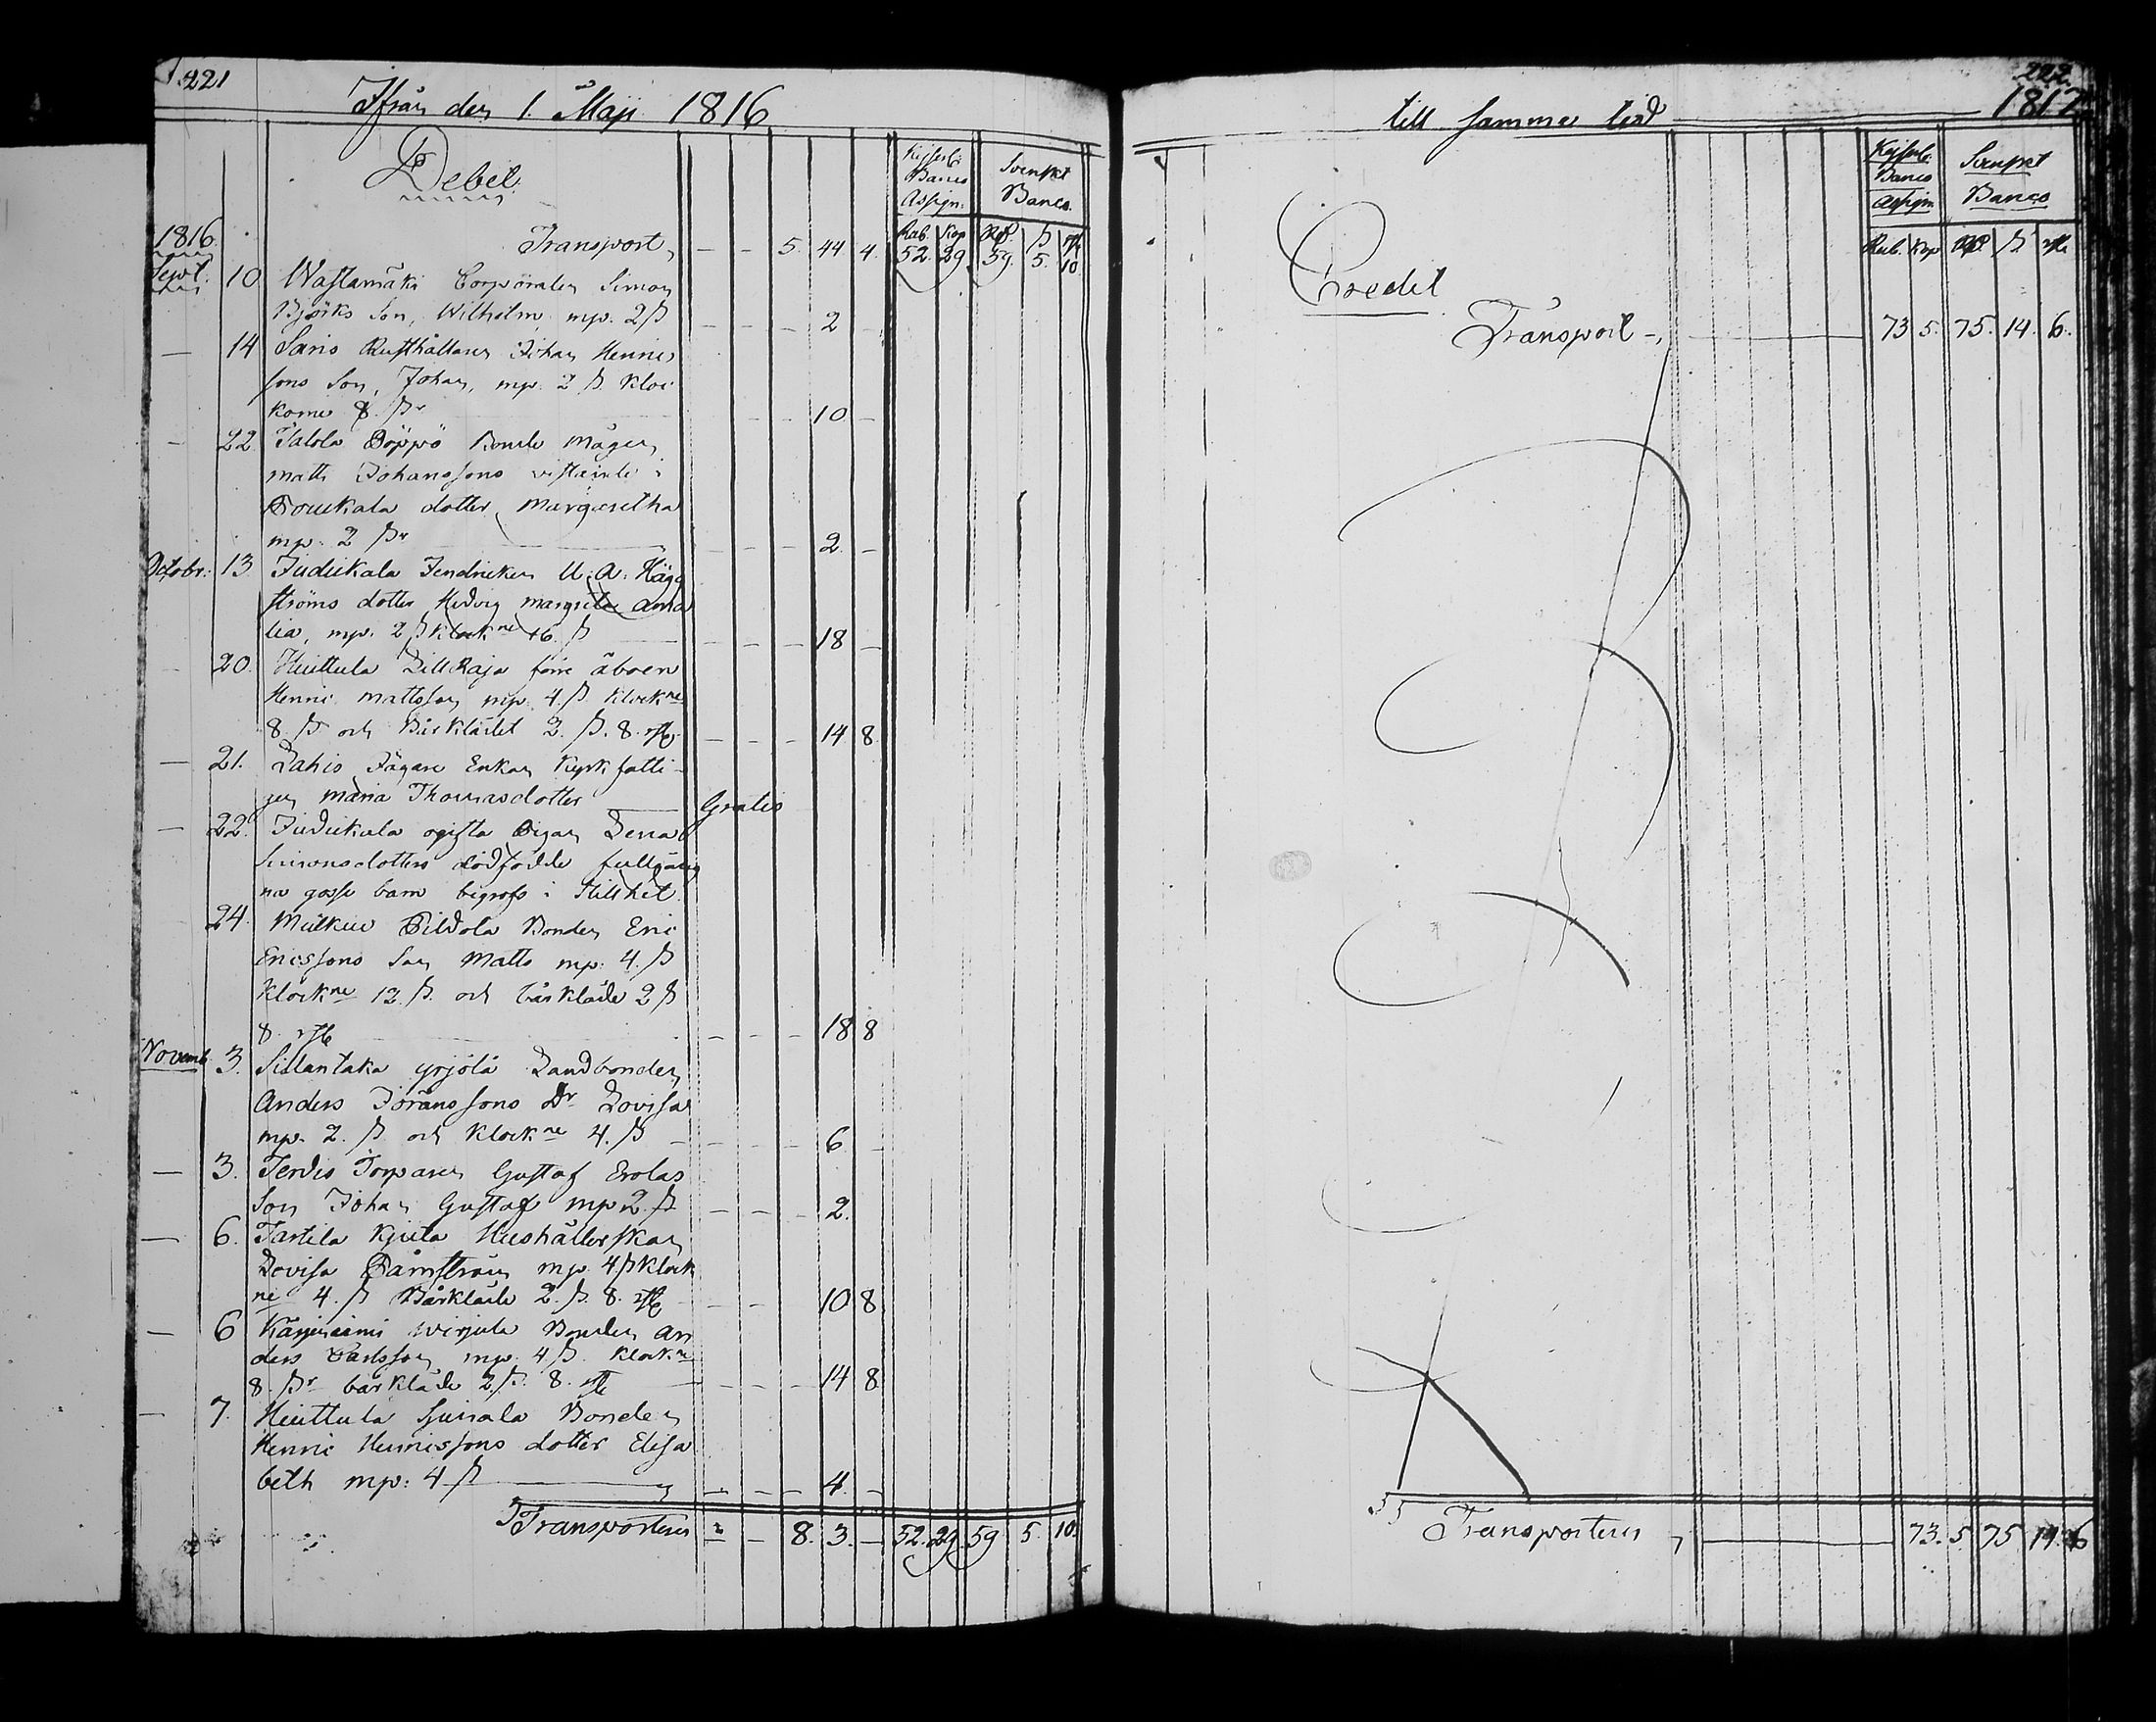 221
Ifrån den 1. Maji 1816
Debet.
Kejserl: Banco Assign: Svenskt Banco.
Rub. Kop Rd. ß rst
1816. Transport, — — 5. 44 4. 52. 29. 59. 5. 10.
Sept. 10 Wastamäki Corporalen Simon
Björks Son, Wilhelm, mp. 2 ß — — — 2 —
— 14 Saris Rusthållaren Johan Henrics
sons Son, Johan, mp. 2 ß kloc
korne 8. ßr — 10. —
— 22. Jalola Böppö Bonde Mågen
Matts Johanssons vistande i
dotter Margaretha
mp. 2 ßr — — — 2. —
Octobr: 13. Juduckala U. A. Häg
ströms dotter Hedvig Margreta Ama
lia, mp. 2 ß klockne 16. ß — — — 18 —
— 20. Huittula Lill Raja förre åboen
Henric Mattsson mp. 4 ß. klockne
8. ß och Bårklädet 2. ß. 8. rst — — — 14 8.
— 21. Lahis Jägare Enkan kyrk fatti
gen Maria Thomasdotter — Gratis
— 22. ogifta Pigan Lena
Simonsdotters dödfödde fullgång
na gosse barn begrofs i Stillhet.
24. Bonden Eric
Ericssons Son Matts mp: 4. ß
klockne 12. ß. och bårkläde 2 ß
8. rst — — — 18 8
Novemb. 3. Sillantaka yrjölä Landbonden
Anders Jöranssons Dr Lovisa
mp. 2. ß och klockne 4. ß — — — — 6 —
— 3. Torparen Gustaf Erolas
Son Johan Gustaf mp 2. ß — — — 2.
— 6. Tartila Kjuta Hushållerskan
Lovisa Damström mp. 4 ß klock
ne 4. ß Bårkläde 2. ß. 8. rst — — 10 8
— 6 Bonden An
ders Carlsson mp. 4 ß. klockne
8. ßr bårkläde 2. ß. 8. rst — — — 14 8
— 7. Huittula Bonden
Henric Henricssons dotter Elisa
beth mp: 4 ß — — — — 4. —
Transporteras — — 8. 3. — 52. 29. 59 5. 10.
222.
till samma tid 1817
Kejserl: Banco Assign Svenskt Banco
Rub. Kop Rd. ß. rst
Credit
Transport —, 73 5. 75. 14. 6.
Transporteras 73. 5 75 14. 6